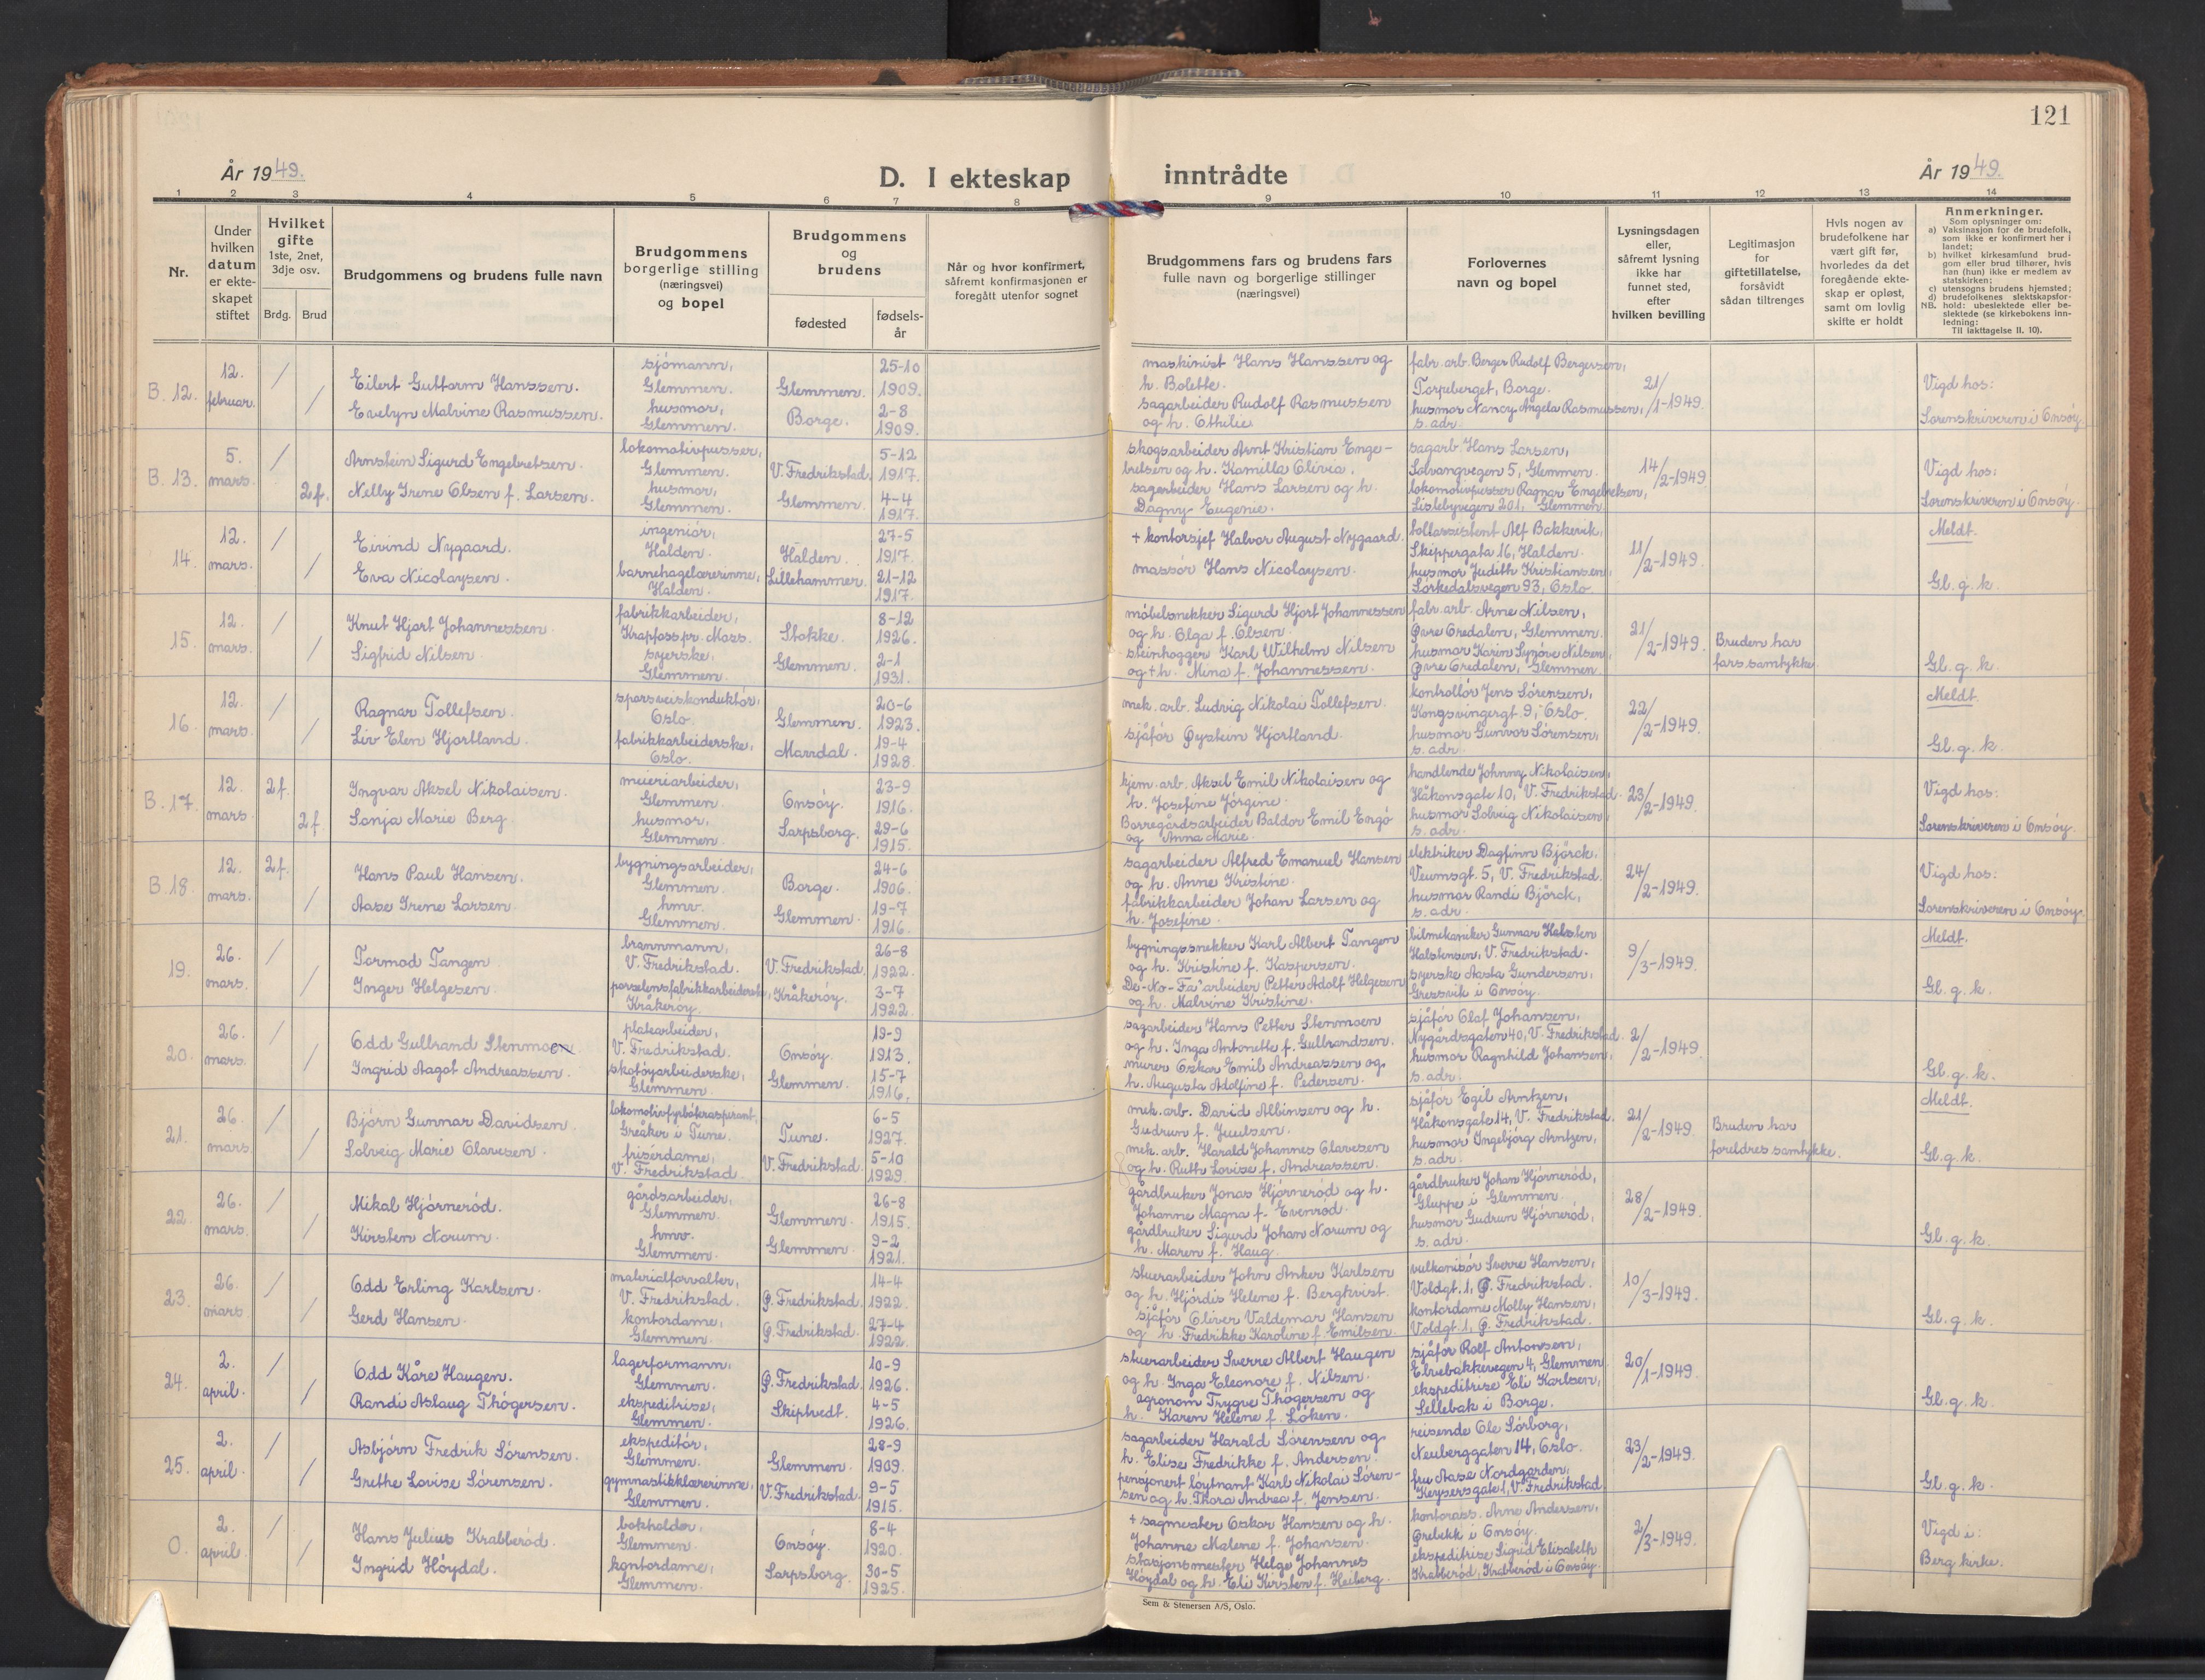 121
År 1949.
D. I ekteskap inntrådte
År 1949.
1 2 3 4 5 6 7 8 9 10 11 12 13 14
Nr.
Under hvilken datum er ekte-skapet stiftet
Hvilket gifte 1ste, 2net, 3dje osv.
Brdg. Brud
Brudgommens og brudens fulle navn
Brudgommens borgerlige stilling (næringsvei) og bopel
Brudgommens og brudens
fødested
fødsels-år
Når og hvor konfirmert, såfremt konfirmasjonen er foregått utenfor sognet
Brudgommens fars og brudens fars fulle navn og borgerlige stillinger (næringsvei)
Forlovernes navn og bopel
Lysningsdagen eller, såfremt lysning ikke har funnet sted, efter hvilken bevilling
Legitimasjon for giftetillatelse, forsåvidt sådan tiltrenges
Hvis nogen av brudefolkene har vært gift før, hvorledes da det foregående ekte-skap er opløst, samt om lovlig skifte er holdt
Anmerkninger.
Som oplysninger om:
a) Vaksinasjon for de brudefolk, som ikke er konfirmert her i landet;
b) hvilket kirkesamfund brud-gom eller brud tilhører, hvis han (hun) ikke er medlem av statskirken;
c) utensogns brudens hjemsted;
d) brudefolkenes slektskapsfor-hold: ubeslektede eller be-slektede (se kirkebokens inn-ledning:
NB. Til iakttagelse II. 10).
B. 12. 12. februar. / /
Eilert Guttorm Hanssen.
Evelyn Malvine Rasmussen.
sjömann, Glemmen.
husmor, Glemmen.
Glemmen. 25-10 1909.
Borge. 2-8 1909.
maskinist Hans Hanssen og
h. Bolette.
sagarbeider Rudolf Rasmussen
og h. Othilie
fabr. arb. Berger Rudolf Bergersen,
Torpeberget, Borge.
husmor Nancy Angela Rasmussen,
s. adr.
21/1-1949.
Vigd hos:
Sorenskriveren i Onsöy.
B. 13. 5. mars. / 2 f.
Arnstein Sigurd Engebretsen.
Nelly Irene Olsen f. Larsen.
lokomotivpusser, Glemmen.
husmor, Glemmen.
V. Fredrikstad. 5-12 1917.
Glemmen. 4-4 1917.
skogsarbeider Arnt Kristian Enge-
bretsen og h. Kamilla Olivia.
sagarbeider Hans Larsen og h.
Dagny Eugenie.
sagarb. Hans Larsen,
Solvangvegen 5, Glemmen.
lokomotivpusser Ragnar Engebretsen,
Lislebyvegen 201, Glemmen.
14/2-1949
Vigd hos:
Sorenskriveren i Onsöy.
14. 12. mars. / /
Eivind Nygaard.
Eva Nicolaysen.
ingeniör, Halden.
barnehagelærerinne, Halden.
Halden. 27-5 1917.
Lillehammer. 21-12 1917.
+ kontorsjef Halvor August Nygaard.
massör Hans Nicolaysen.
tollassistent Alf Bakkevik,
Skippergata 16, Halden.
husmor Judith Kristiansen,
Sörkedalsvegen 93, Oslo.
11/2-1949.
Meldt.
Gl. g. k.
15. 12. mars. / /
Knut Hjort Johannessen.
Sigfrid Nilsen.
fabrikkarbeider, Krapfoss pr. Moss.
syerske, Glemmen.
Stokke. 8-12 1926.
Glemmen. 2-1 1931.
möbelsnekker Sigurd Hjort Johannessen
og h. Olga f. Olsen.
steinhogger Karl Wilhelm Nilsen
og + h. Mina f. Johannessen.
fabr. arb. Arne Nilsen,
Øvre Oredalen, Glemmen.
husmor Karin Synöve Nilsen,
Øvre Oredalen, Glemmen.
21/2-1949.
Bruden har
fars samtykke.
Gl. g. k.
16. 12 mars. / /
Ragnar Tollefsen.
Liv Elen Hjortland.
sporveiskonduktör, Oslo.
fabrikkarbeiderske, Oslo.
Glemmen. 20-6 1923.
Mandal. 19-4 1928.
mek. arb. Ludvig Nikolai Tollefsen.
sjåför Øystein Hjortland.
kontrollör Jens Sörensen,
Kongsvingergt. 9, Oslo.
husmor Gunvor Sörensen,
s. adr.
22/2-1949.
Meldt.
Gl. g. k.
B. 17. 12. mars 2 f. 2 f.
Ingvar Aksel Nikolaisen.
Sonja Marie Berg.
meieriarbeider, Glemmen.
husmor, Glemmen.
Onsöy. 23-9 1916.
Sarpsborg. 29-6 1915.
kjem. arb. Aksel Emil Nikolaisen og
h. Josefine Jörgine.
Borregårdsarbeider Baldor Emil Engö
og Anna Marie.
handlende Johnny Nikolaisen,
Håkonsgate 10, V. Fredrikstad.
husmor Solveig Nikolaisen,
s. adr.
23/2-1949.
Vigd hos:
Sorenskriveren i Onsöy.
B. 18. 12. mars. 2 f. /
Hans Paul Hansen.
Aase Irene Larsen.
bygningsarbeider, Glemmen.
hmv. Glemmen.
Borge. 24-6 1906.
Glemmen. 19-7 1916.
sagarbeider Alfred Emanuel Hansen
og h. Anne Kristine.
fabrikkarbeider Johan Larsen og
h. Josefine.
elektriker Dagfinn Björck,
Veumsgt. 5, V. Fredrikstad.
husmor Randi Björck,
s. adr.
24/2-1949.
Vigd hos:
Sorenskriveren i Onsöy.
19. 26. mars. / /
Tormod Tangen.
Inger Helgesen.
brannmann, V. Fredrikstad.
porselensfabrikkarbeiderske, Kråkeröy.
V. Fredrikstad. 26-8 1922.
Kråkeröy. 3-7 1922.
bygningssnekker Karl Albert Tangen
og h. Kristine f. Kaspersen.
"De-No-Fa" arbeider Petter Adolf Helgesen
og h. Malvine Kristine.
bilmekaniker Gunnar Halsten
Halstensen, V. Fredrikstad.
syerske Aasta Gundersen,
Gressvik i Onsöy.
9/3-1949.
Meldt.
Gl. g. k.
20. 26. mars. / /
Odd Gulbrand Stenmoen
Ingrid Aagot Andreassen.
platearbeider, V. Fredrikstad.
skotöyarbeiderske, Glemmen.
Onsöy. 19-9 1913.
Glemmen. 15-7 1916.
sagarbeider Hans Petter Stenmoen
og h. Inga Antonette f. Gulbrandsen.
murer Oskar Emil Andreassen og
h. Augusta Adolfine f. Pedersen.
sjåför Olaf Johansen,
Nygårdsgaten 40, V. Fredrikstad.
husmor Ragnhild Johansen,
s. adr.
2/2-1949.
Gl. g. k.
21. 26. mars / /
Björn Gunnar Davidsen.
Solveig Marie Olavesen.
lokomotivfyrböteraspirant, Greåker i Tune.
frisérdame, V. Fredrikstad.
Tune. 6-5 1927.
V. Fredrikstad. 5-10 1929.
mek. arb. David Albinsen og h.
Gudrun f. Juulsen.
mek. arb. Harald Johannes Olavesen
og h. Ruth Lovise f. Andreassen.
sjåför Egil Arntzen,
Håkonsgate 14, V. Fredrikstad.
husmor Ingebjörg Arntzen,
s. adr.
21/2-1949
Bruden har
foreldres samtykke.
Meldt.
Gl. g. k.
22. 26. mars. / /
Mikal Hjörneröd.
Kirsten Norum.
gårdsarbeider, Glemmen.
hmv. Glemmen.
Glemmen. 26-8 1915.
Glemmen. 9-2 1921.
gårdbruker Jonas Hjörneröd og h.
Johanne Magna f. Evenröd.
gårdbruker Sigurd Johan Norum og
h. Maren f. Haug.
gårdbruker Johan Hjörneröd,
Gluppe i Glemmen.
husmor Gudrun Hjörneröd,
s. adr.
28/2-1949.
Gl. g. k.
23. 26. mars / /
Odd Erling Karlsen.
Gerd Hansen.
materialforvalter, V. Fredrikstad.
kontordame, Glemmen.
Ø. Fredrikstad. 14-4 1922.
Ø. Fredrikstad. 27-4 1922.
stuerarbeider John Anker Karlsen
og h. Hjördis Helene f. Bergkvist.
sjåför Oliver Valdemar Hansen
og h. Fredrikke Karoline f. Emilsen.
vulkanisör Sverre Hansen,
Voldgt. 1, Ø. Fredrikstad.
kontordame Molly Hansen,
Voldgt. 1, Ø. Fredrikstad.
10/3-1949.
Gl. g. k.
24. 2. april. / /
Odd Kåre Haugen.
Randi Aslaug Thögersen.
lagerformann, Glemmen.
ekspeditrise, Glemmen.
Ø. Fredrikstad. 10-9 1926.
Skiptvedt. 4-5 1926.
stuerarbeider Sverre Albert Haugen
og h. Inga Eleonore f. Nilsen.
agronom Trygve Thögersen og
h. Karen Helene f. Löken.
sjåför Rolf Antonsen,
Elvebakkevegen 4, Glemmen
ekspeditrise Eli Karlsen,
Sellebak i Borge.
20/1-1949.
Gl. g. k.
25. 2. april. / /
Asbjörn Fredrik Sörensen.
Grethe Lovise Sörensen.
ekspeditör, Glemmen.
gymnastikklærerinne, Glemmen.
Glemmen. 28-9 1909.
V. Fredrikstad. 9-5 1915.
sagarbeider Harald Sörensen og
h. Elise Fredrikke f. Andersen.
pensjonert löytnant Karl Nikolai Sören-
sen og h. Thora Andrea f. Jensen.
reisende Ole Sörborg,
Neuberggaten 14, Oslo.
fru Aase Nordgarden,
Keysersgate 1, V. Fredrikstad
23/2-1949.
Gl. g. k.
O. 2. april. / /
Hans Julius Krabberöd.
Ingrid Höydal.
bokholder, Glemmen.
kontordame, Glemmen.
Onsöy. 8-4 1920.
Sarpsborg. 30-5 1925.
+ sagmester Oskar Hansen og h.
Johanne Malene f. Johansen.
stasjonsmester Helge Johannes
Höydal og h. Eli Kirsten f. Heiberg.
kontorass. Arne Andersen,
Ørebekk i Onsöy.
ekspeditrise Sigrid Elisabeth
Krabberöd, Krabberöd i Onsöy.
2/3-1949.
Vigd i:
Berg kirke.
Sem & Stenersen A/S, Oslo.